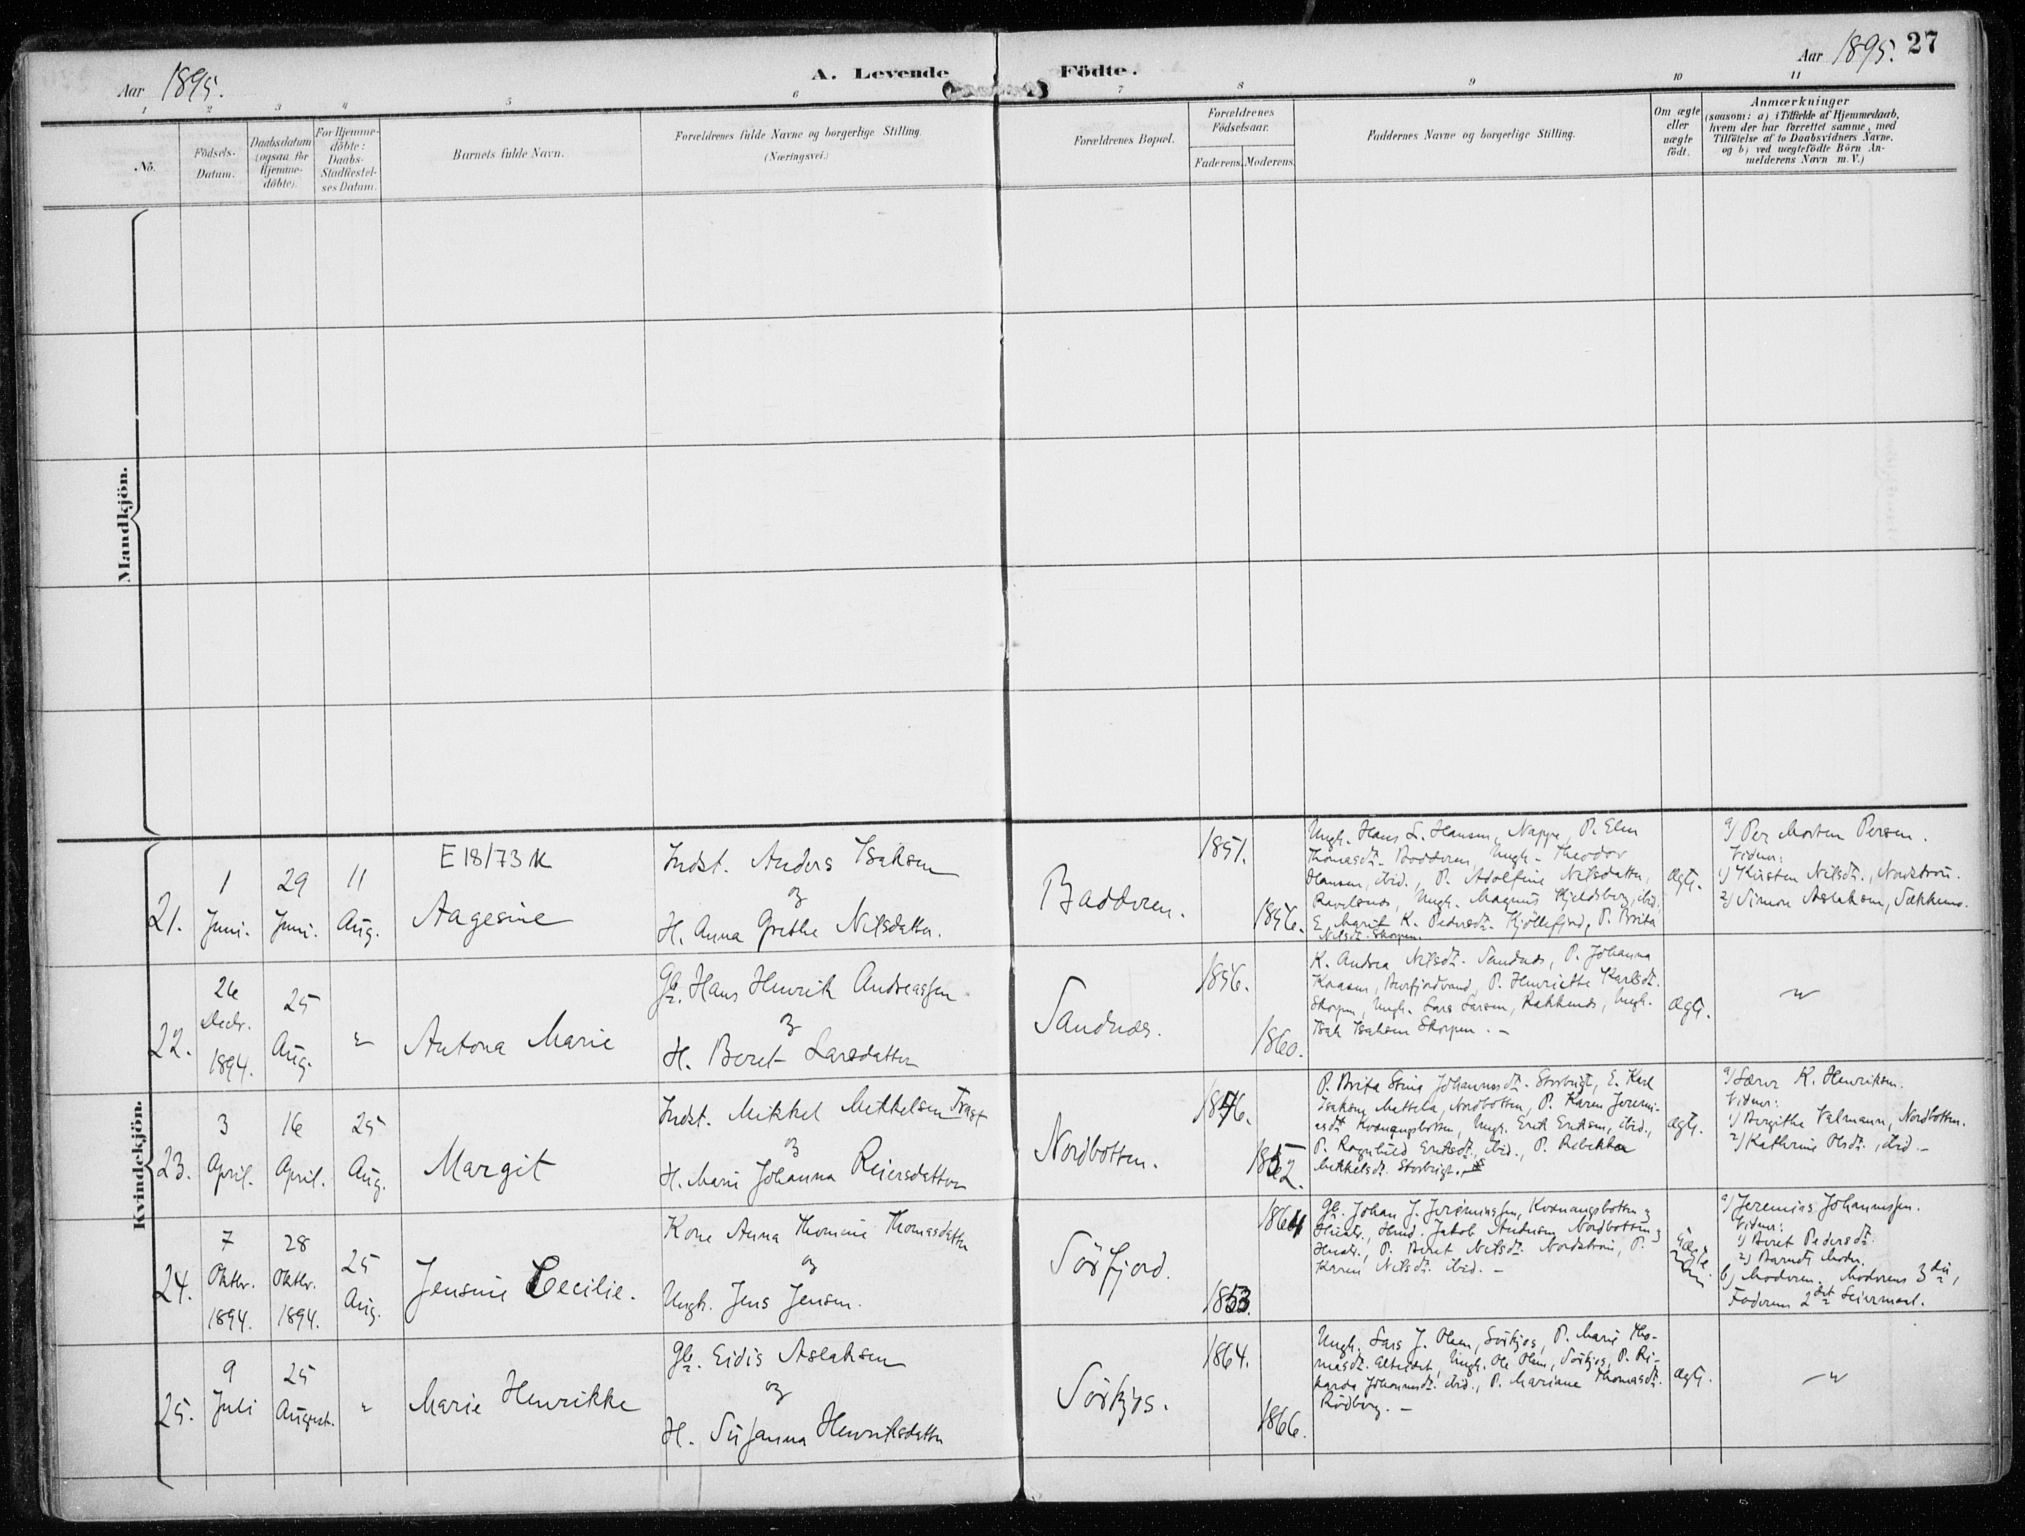 Aar 1895.
A. Levende Födte.
Aar 1895. 27
1 2 3 4 5 6 7 8 9 10 11
No.
Födsels-Datum.
Daabsdatum (ogsaa for Hjemme-döbte).
For Hjemme-döbte: Daabs-Stadfæstel-ses Datum.
Barnets fulde Navn.
Forældrenes fulde Navne og borgerlige Stilling.
(Næringsvei.)
Forældrenes Bopæl.
Forældrenes Födselsaar.
Faderens. Moderens.
Faddernes Navne og borgerlige Stilling.
Om ægte eller uægte födt.
Anmærkninger
(saasom: a) i Tilfælde af Hjemmedaab,
hvem der har forrettet samme, med
Tilföielse af to Daabsvidners Navne.
og b) ved uægtefödte Börn An-
melderens Navn m. V.)
Mandkjön.
Kvindekjön.
21.
1
Juni.
29
Juni.
11
Aug.
E 18/73 K
Aagesine
Indst. Anders Isaksen
og
H. Anna Grethe Nilsdatter.
Badderen.
1851.
1856.
Ungk. Hans L. Hansen, Nappe, P. Elen
Thomasdt. Badderen, Ungk. Theodor
Hansen, ibid., P. Adolfine Nilsdatter,
Ungk. Magnus Kjeldsberg, ibid,
E. Marit K. Pedersdt. Kjöllefjord, P. Brita
Nilsdt. Skorpen.
ægt.
a) Per Morten Persen.
Vidner:
1) Kirsten Nilsdt., Nordström.
2) Simon Aslaksen,
22.
26
Decbr.
1894.
25
Aug.
"
Antona Marie
Gb. Hans Henrik Andreassen
og
H. Beret Larsdatter
Sandnæs.
1856.
1860.
K. Andrea Nilsdt. Sandnæs, P. Johanna
Burfjordvand, P. Henriette Karlsdt.
Skorpen, Ungk. Lars Larsen, Ungk.
Isak Isaksen Skorpen. –
ægt.
"
23.
3
April.
16
April.
25
Aug.
Margit
Indst. Mikkel Mikkelsen
og
H. Marie Johanna Reiersdatter
Nordbotten.
1846.
1852.
P. Brita Stina Johannesdt. Storbugt, E. Karl
Isaksen Nordbotten, P. Karen Jeremi-
asdt Kvænangsbotten, Ungk. Erik Eriksen, ibid.,
P. Ragnhild Eriksdt. ibid., P. Rebekka
Mikkelsdt. Storbugt.
ægt.
a) Lærer K. Henriksen.
Vidner:
1) Bergithe Valmann, Nordbotten.
2) Kathrine Olsdt., ibid –
24.
7
Oktbr.
1894.
28
Oktbr.
1894.
25
Aug.
Jensine Cecilie.
Kone Anna Thomine Thomasdatter
og
Ungk. Jens Jensen.
Sörfjord.
1864
1853.
Gb. Johan J. Jeremiassen, Kvænangsbotten og
Hustr., Jakob Andersen Nordbotten og
Hustr., P. Beret Nilsdt. Nordström, P.
Karen Nilsdt. ibid. –
uægte
a) Jeremias Johannessen.
Vidner:
1) Beret Pedersdt.
2) Barnets Moder.
b) Moderen. Moderens 3die,
Faderens 2det Leiermaal.
25.
9
Juli
25
August.
"
Marie Henrikke
Gb. Eidis Aslaksen
og
H. Susanna Henriksdatter
Sörkjos.
1864.
1866.
Ungk. Lars J. Olsen, Sörkjos, P. Marie Tho-
masdt. Alteidet, Ungk. Ole Olsen, Sörkjos, P. Ri-
karda Johannesdt. ibid., P. Mariane Thomasdt.
Rödberg. –
ægt.
"